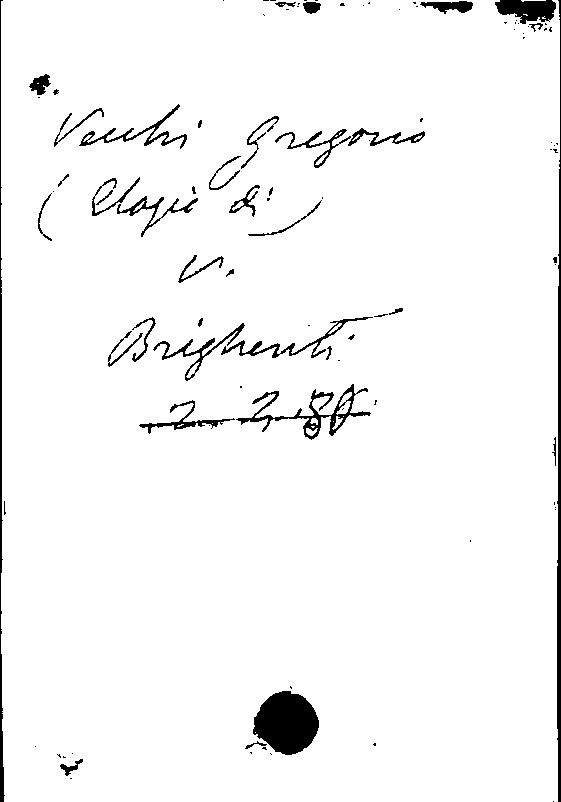 Vecchi Gregorio
(Elogio di)
V.
Brighenti